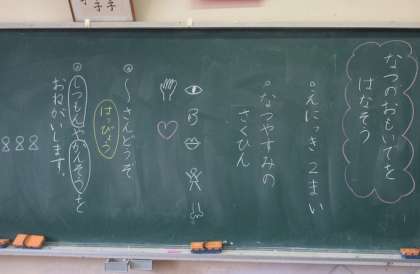 なつのおもいでを
はなそう
。えにっき 2まい
。なつやすみの
さくひん
〜さんどうぞ
はっぴょう
しつもんやかんそうを
おねがいします。
888